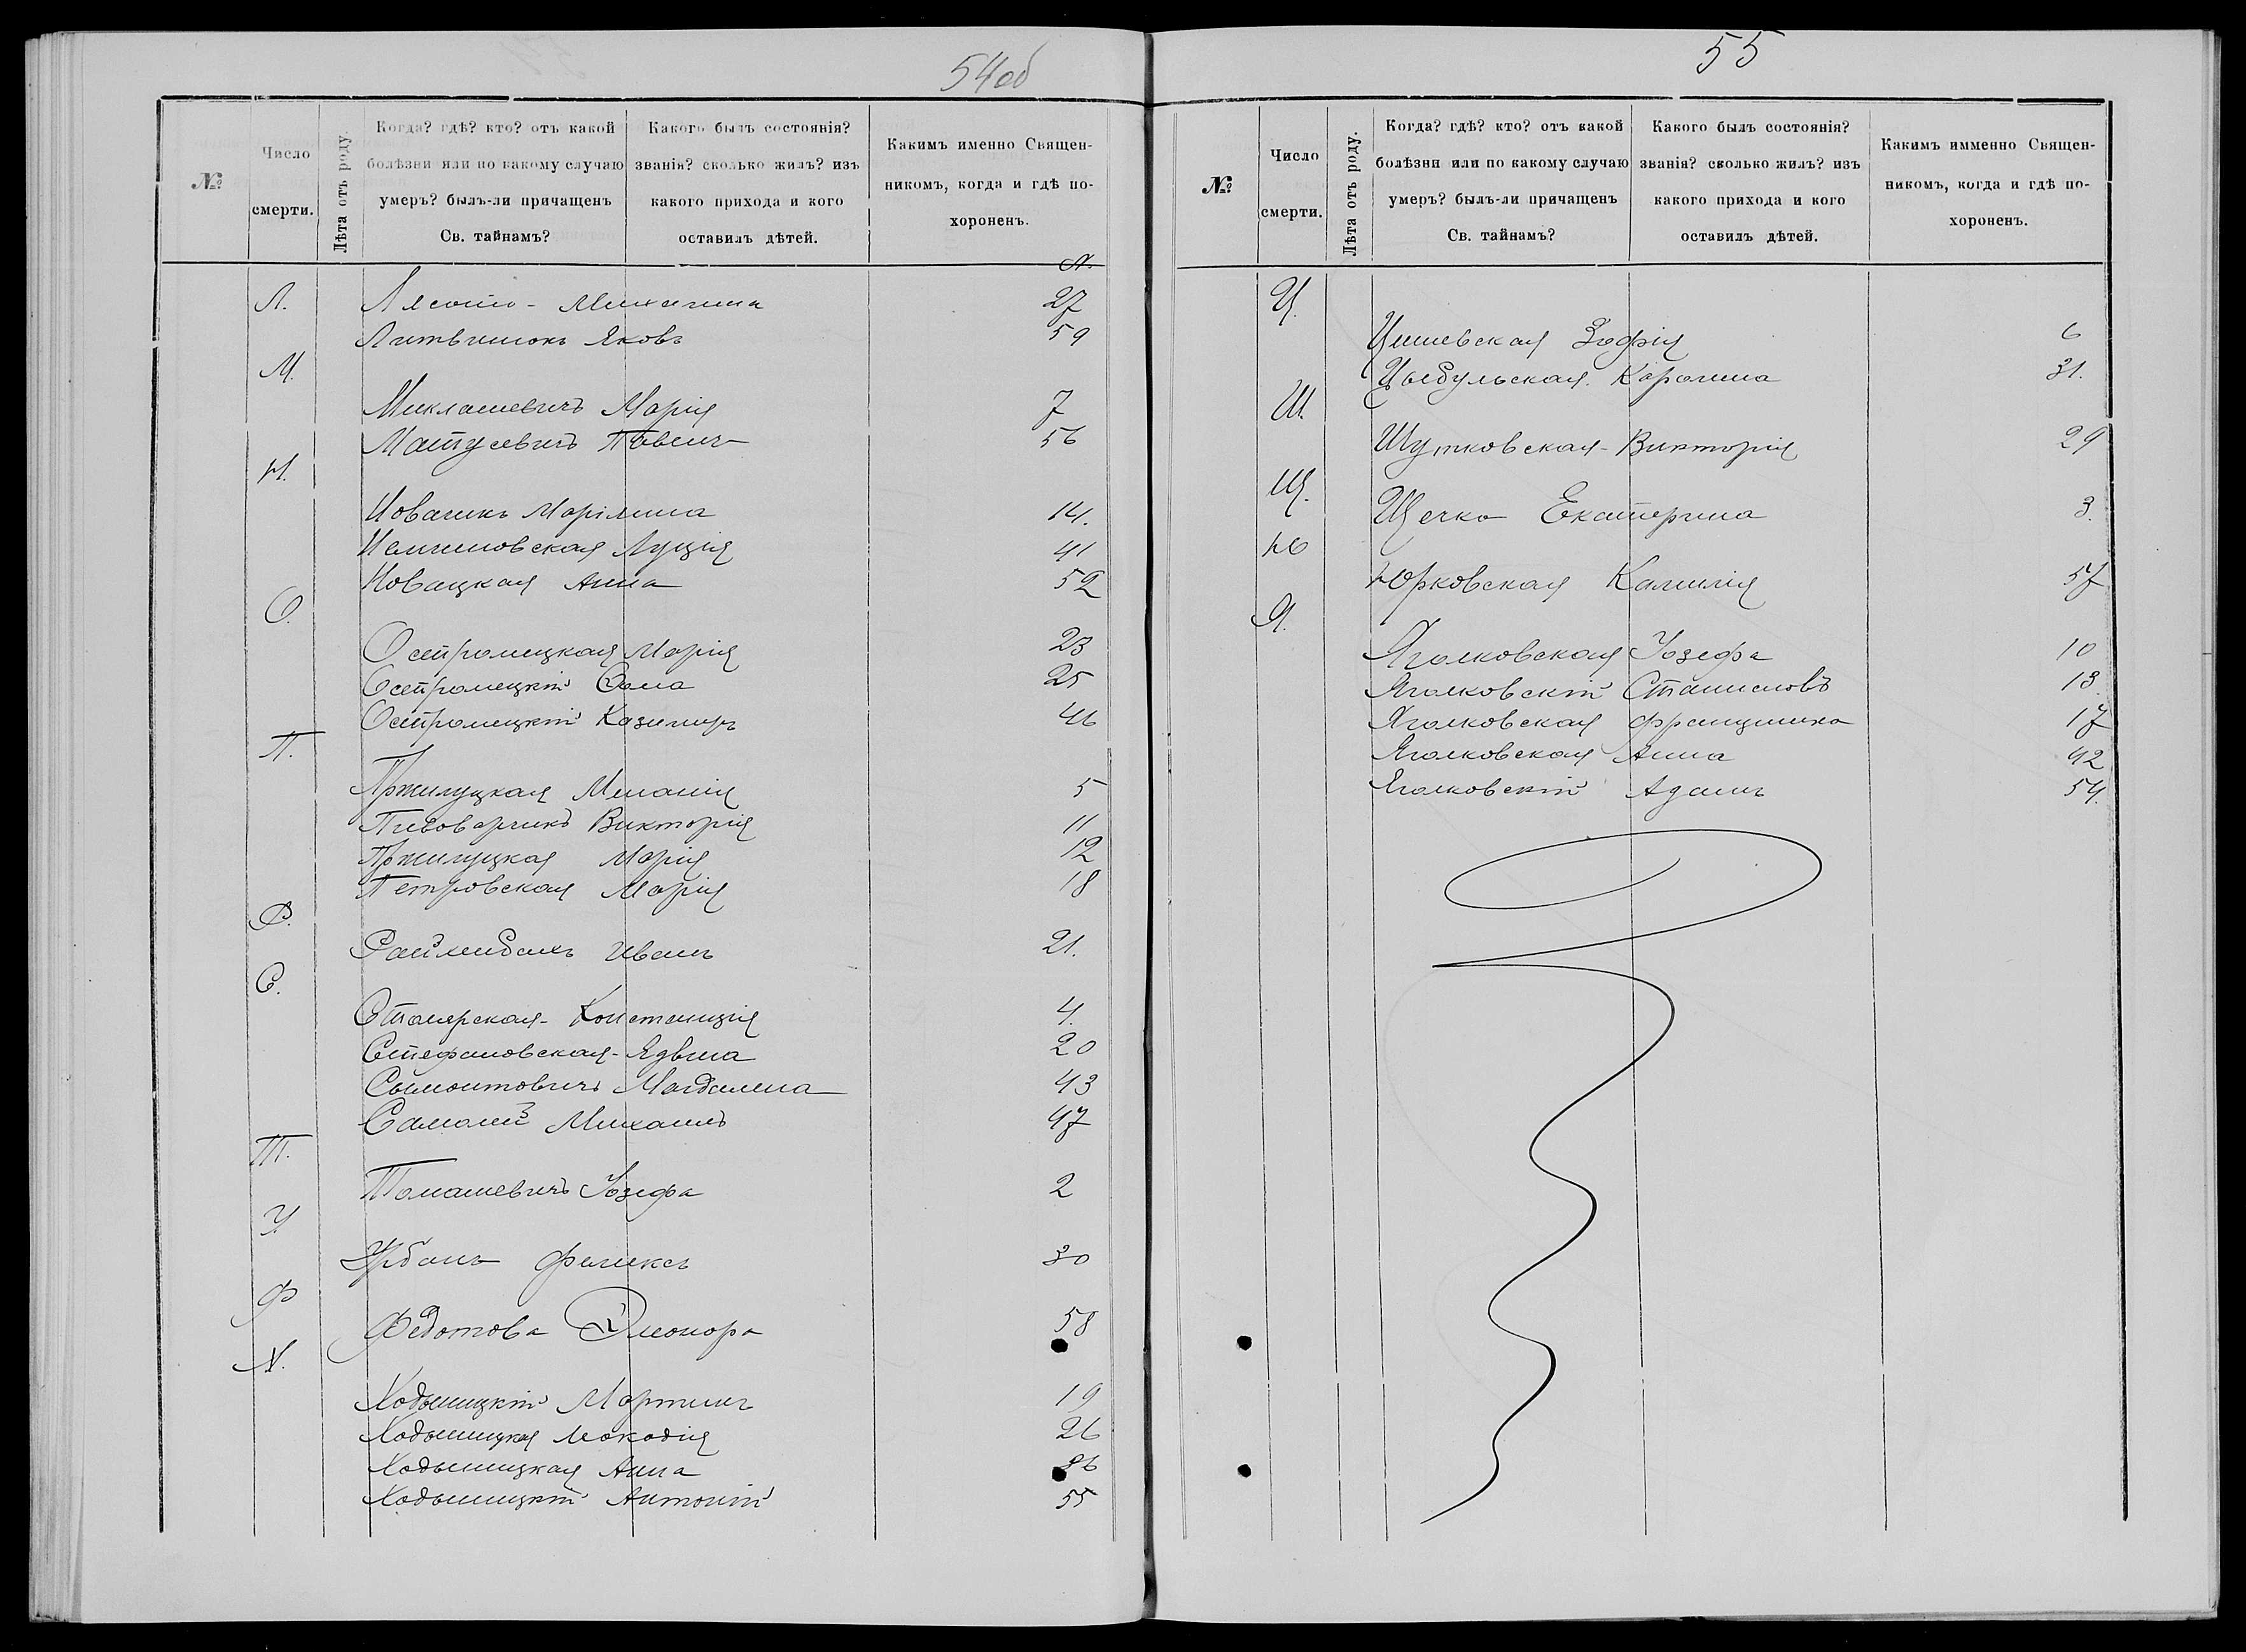 54об
№
Число смерти.
Лѣта отъ роду.
Когда? гдѣ? кто? отъ какой болѣзни или по какому случаю умеръ? былъ-ли причащенъ Св. тайнамъ?
Какого былъ состоянія? званія? сколько жилъ? изъ какого прихода и кого оставилъ дѣтей.
Какимъ именно Священникомъ, когда и гдѣ похороненъ.
№.
Л.
27
Литвинюкъ Яковъ 59
М.
Миклашевичъ Марія 7
Матусевичъ Павелъ 56
Н.
Новачикъ Маріянна 14.
Луція 41
Новацкая Анна 52
О.
Остромецкая Марія 23
Остромецкій Ѳома 25
Остромецкій Казимиръ 46
П.
Пржилуцкая Меланія 5
Пивоварчикъ Викторія 11
Пржилуцкая Марія 12
Петровская Марія 18
Р.
Иванъ 21.
С.
Столярская - Констанція 4.
Стефановская - Ядвига 20
Сымонтовичъ Магдалена 43
Михаилъ 47
Т.
Томашевичъ Юзефа 2
У
Урбанъ Феликсъ 30
Ф
Федотова Элеонора 58
Х.
Ходыницкій Мартинъ 19
Ходыницкая Леокадія 26
Ходыницкая Анна
Ходыницкій Антоній 55
55
№
Число смерти.
Лѣта отъ роду.
Когда? гдѣ? кто? отъ какой болѣзни или по какому случаю умеръ? былъ-ли причащенъ Св. тайнамъ?
Какого былъ состоянія? званія? сколько жилъ? изъ какого прихода и кого оставилъ дѣтей.
Какимъ имменно Священникомъ, когда и гдѣ похороненъ.
Ц.
Зофія 6
Цыбульская Каролина 31.
Ш.
Шутковская - Викторія 29
Щ.
Щечко Екатерина 3.
Ю
Юрковская Камилія 57
Я.
Яголковская Юзефа 10
Яголковскій Станиславъ 13.
Яголковская Францишка 17
Яголковская Анна 42
Яголковскій Адамъ 54.